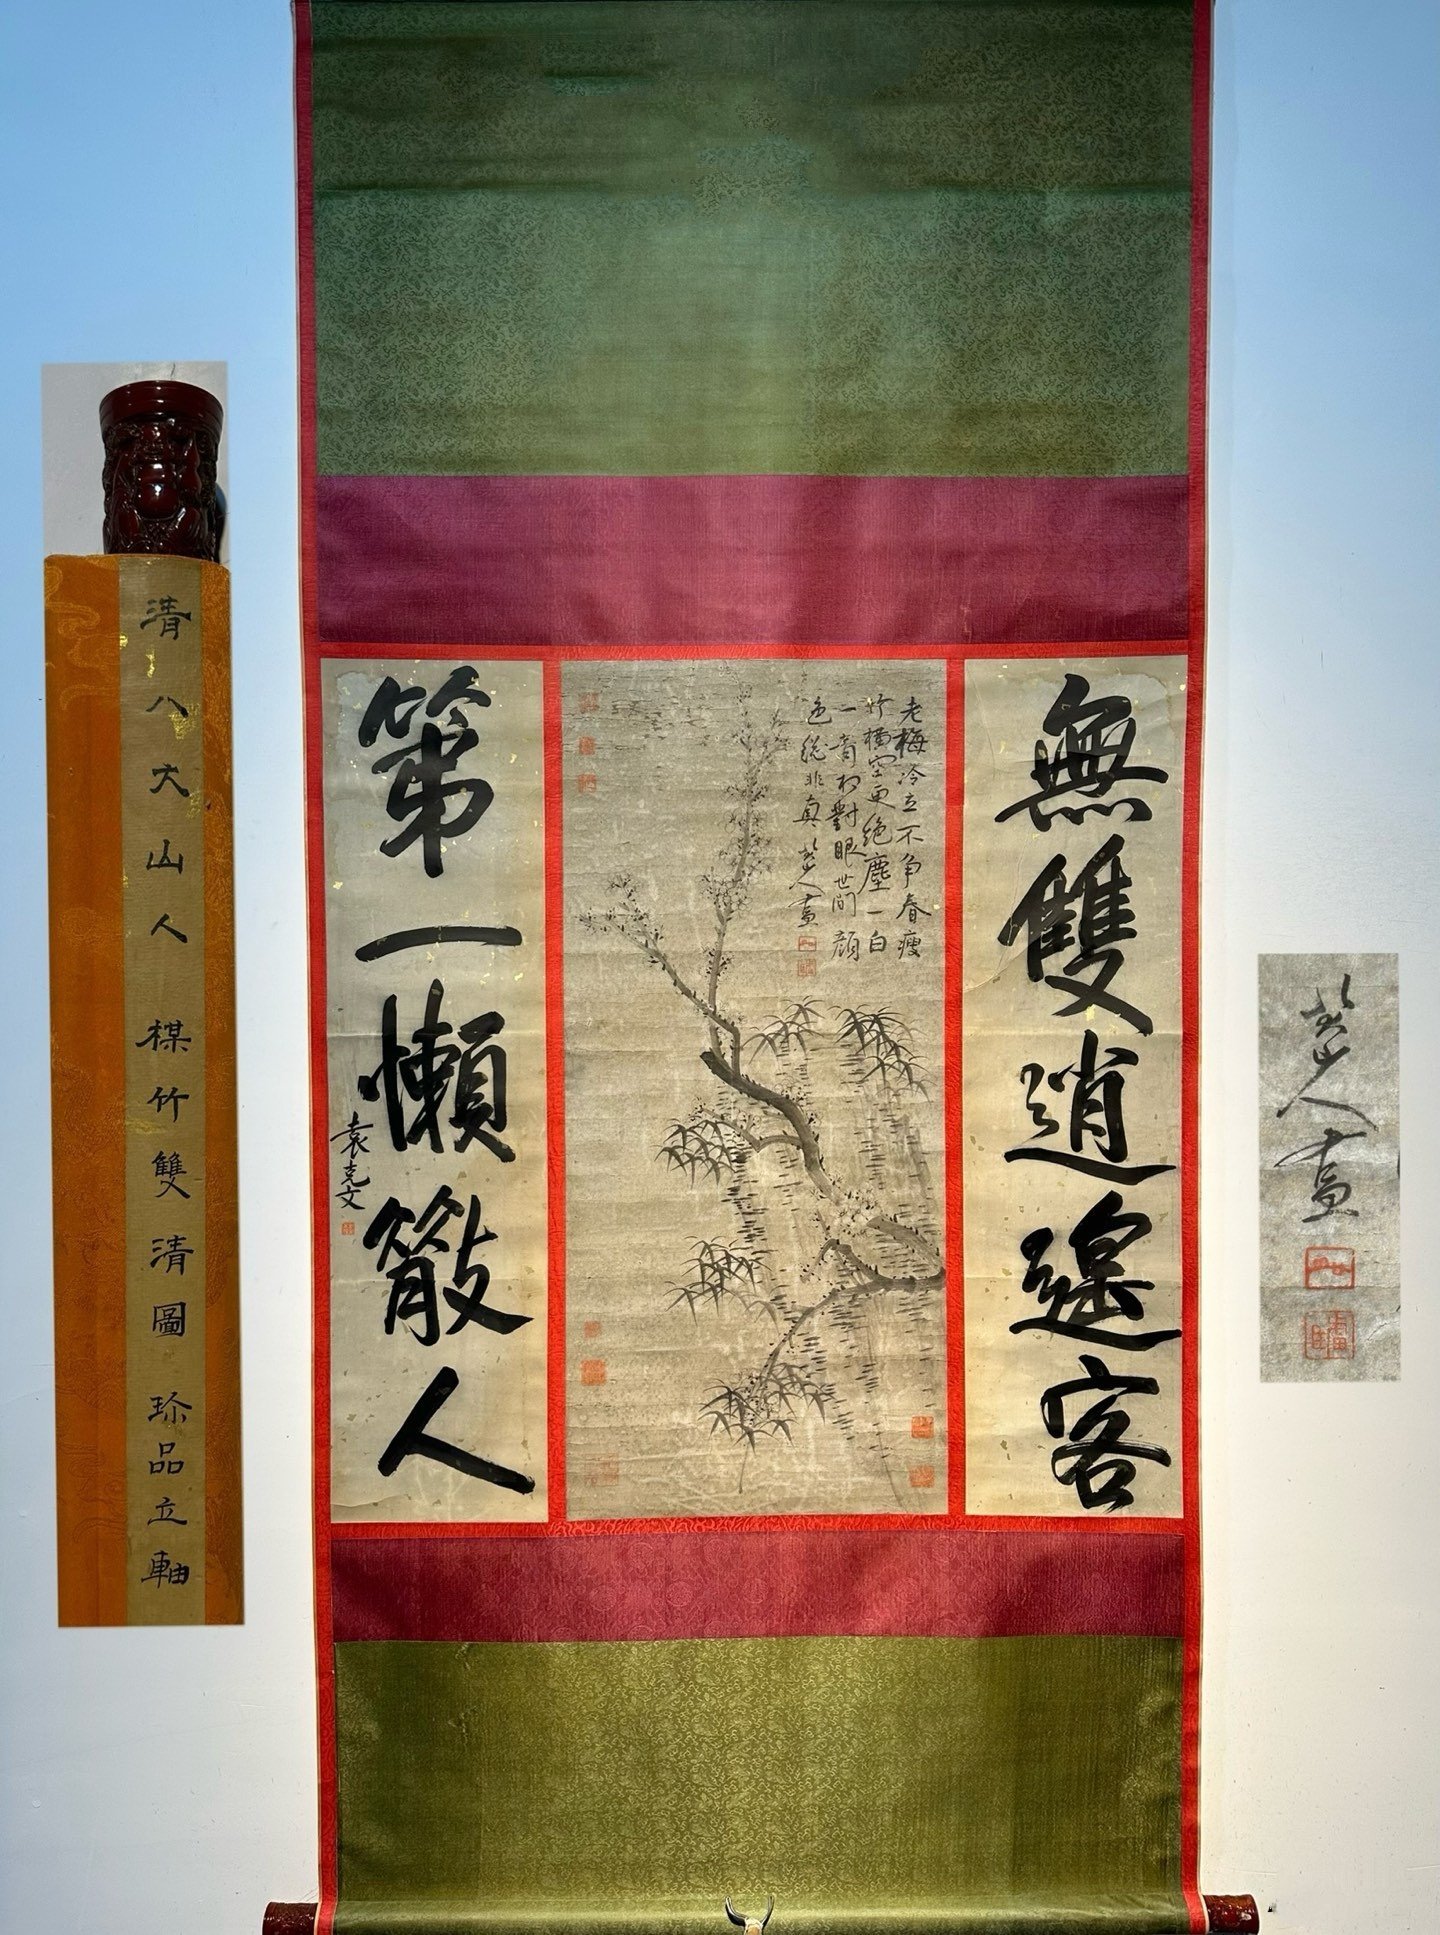 無雙逍遙客
老梅冷立不争春瘦
竹橫空更絶塵一白
一青相對眼世間顔
色總非真 八大山人畫
第一懶散人
袁克文
清八大山人楳竹雙清圖 珍品立軸
八大山人畫